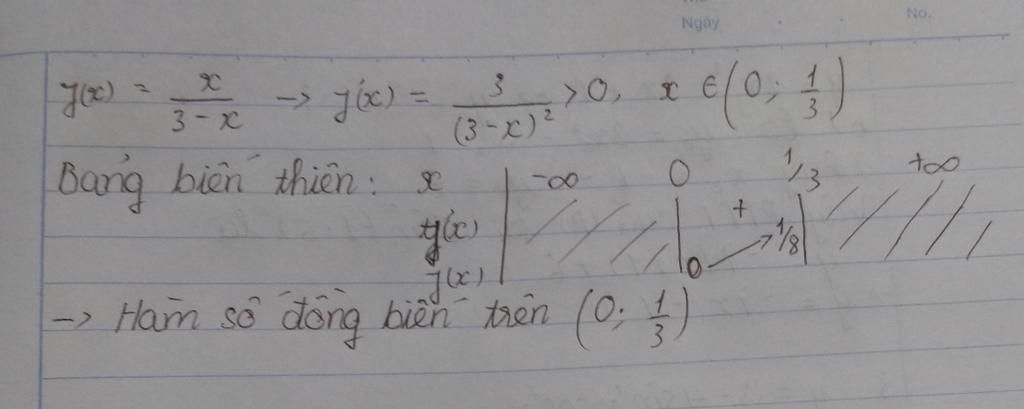 Ngày No.
y(x) = x/(3 - x) → y'(x) = 3/(3 - x)² > 0, x ∈ (0; 1/3)
Bảng biến thiên: x -∞ 0 1/3 +∞
y'(x) +
y(x) 0 1/8
→ Hàm số đồng biến trên (0; 1/3)